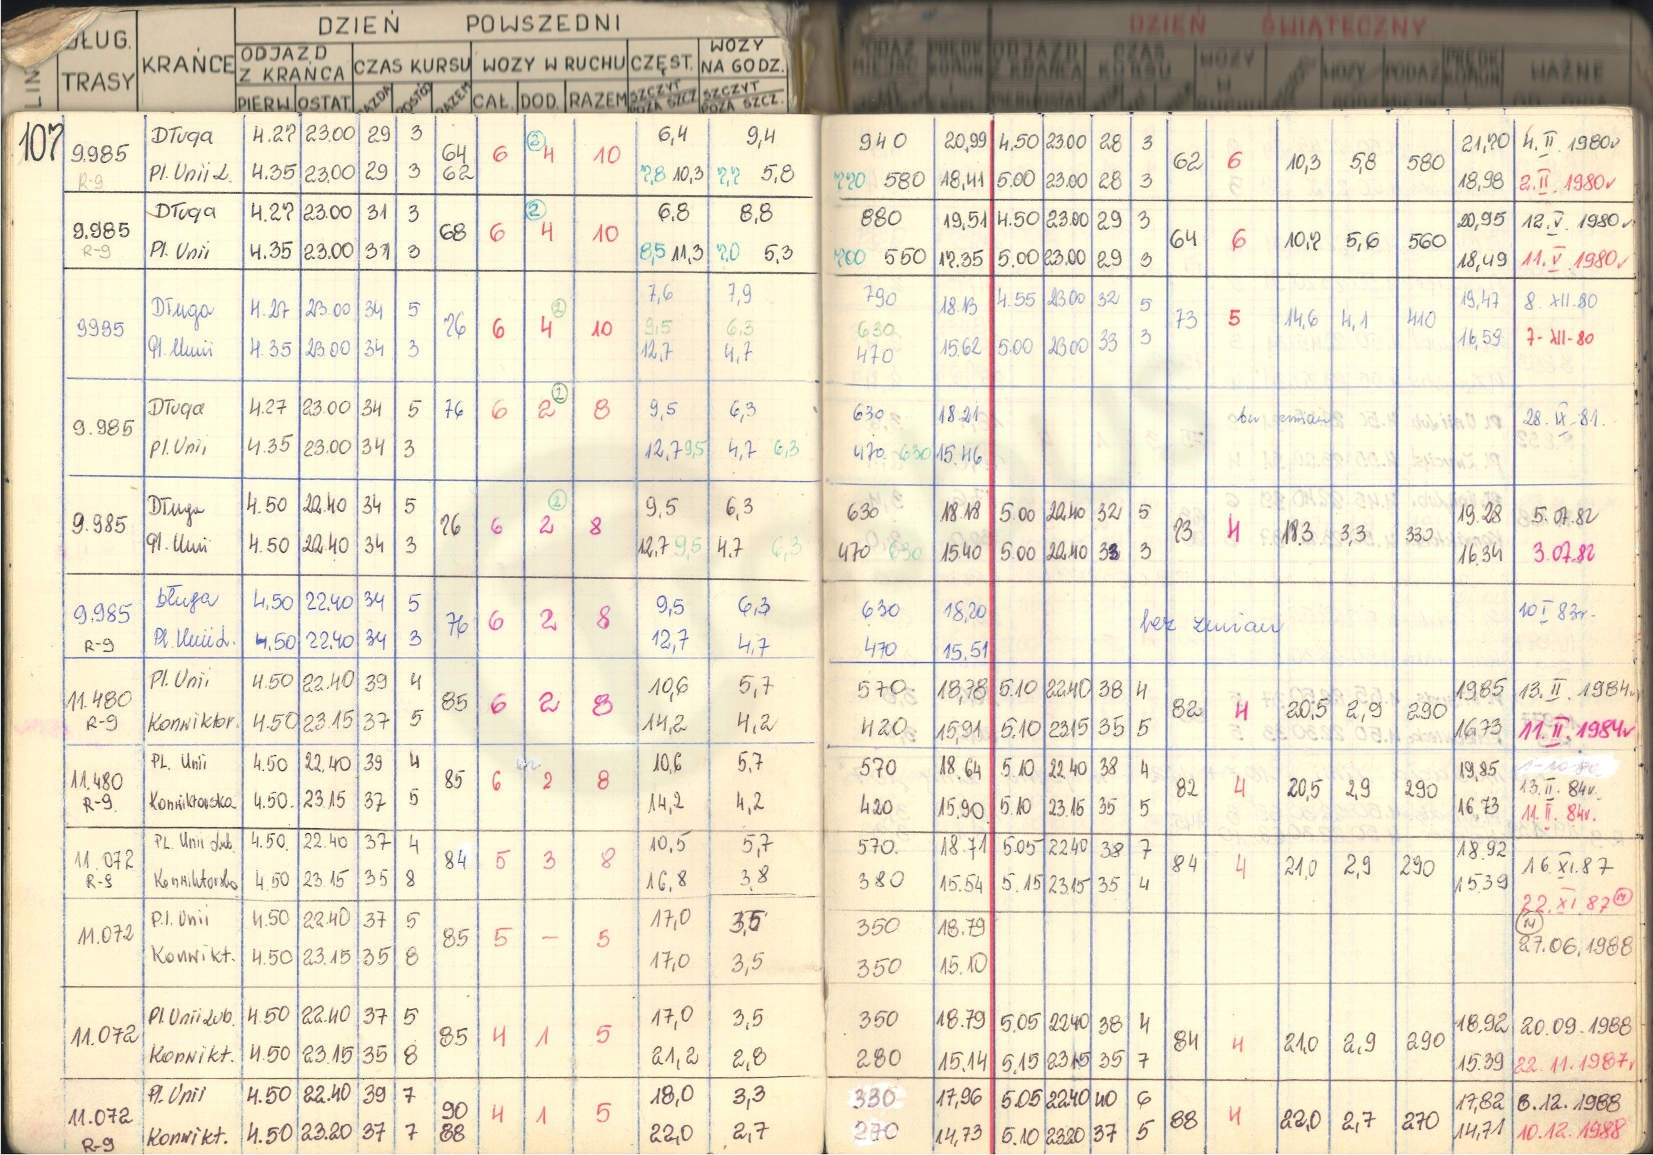 DZIEŃ POWSZEDNI
DZIEŃ ŚWIĄTECZNY
DŁUG. TRASY KRAŃCE ODJAZD Z KRAŃCA CZAS KURSU WOZY W RUCHU CZĘST. WOZY NA GODZ.
LIN
PIERW. OSTAT. CAŁ. DOD. RAZEM SZCZYT POZA SZCZ. SZCZYT POZA SZCZ.
ODJAZD Z KRAŃCA CZAS KURSU WOZY W PODAŻ PRĘDK KOMUN WAŻNE
107
Długa 4.27 23.00 29 3 6,4 9,4 940 20,99 4.50 23.00 28 3 21,70 4.II.1980r
9.985 64 6 4 ② 10 62 6 10,3 5,8 580
R-9 62
Pl. Unii L. 4.35 23.00 29 3 7,8 10,3 7,7 5,8 770 580 18,41 5.00 23.00 28 3 18,98 2.II.1980r
Długa 4.27 23.00 31 3 6,8 8,8 880 19,51 4.50 23.00 29 3 20,95 12.V.1980r
9.985 68 6 4 ② 10 64 6 10,7 5,6 560
R-9
Pl. Unii 4.35 23.00 31 3 8,5 11,3 7,0 5,3 700 550 17.35 5.00 23.00 29 3 18,49 11.V.1980r
Długa 4.27 23.00 34 5 7,6 7,9 790 18.13 4.55 23.00 32 5 19,47 8.XII.80
9985 76 6 4 ② 10 9,5 6,3 630 73 5 14,6 4,1 410
Pl. Unii 4.35 23.00 34 3 12,7 4,7 470 15.62 5.00 23.00 33 3 16,59 7-XII-80
Długa 4.27 23.00 34 5 76 6 2 ② 8 9,5 6,3 630 18.21 bez zmian 28.IX.81.
9.985
Pl. Unii 4.35 23.00 34 3 12,7 9,5 4,7 6,3 470 630 15.46
Długa 4.50 22.40 34 5 9,5 6,3 630 18.18 5.00 22.40 32 5 19.28 5.07.82
9.985 76 6 2 ② 8 73 4 18.3 3,3 330
Pl. Unii 4.50 22.40 34 3 12,7 9,5 4.7 6,3 470 630 15.40 5.00 22.40 33 3 16.34 3.07.82
Długa 4.50 22.40 34 5 9,5 6,3 630 18,20 10 I 83r.
9.985 76 6 2 8 bez zmian
R-9
Pl. Unii L. 4.50 22.40 34 3 12,7 4,7 470 15,51
Pl. Unii 4.50 22.40 39 4 10,6 5,7 570 18,78 5.10 22.40 38 4 19,85 13.II.1984r
11.480 85 6 2 8 82 4 20,5 2,9 290
R-9
Konwiktor. 4.50 23.15 37 5 14,2 4,2 420 15,91 5.10 23.15 35 5 16,73 11.II.1984r
Pl. Unii 4.50 22.40 39 4 10,6 5,7 570 18.64 5.10 22.40 38 4 19,85
11.480 85 6 2 8 82 4 20,5 2,9 290 13.II.84r.
R-9
Konwiktorska 4.50. 23.15 37 5 14,2 4,2 420 15,90 5.10 23.15 35 5 16,73 11.II.84r.
Pl. Unii Lub. 4.50. 22.40 37 4 10,5 5,7 570. 18.71 5.05 22.40 38 7 18.92
11.072 84 5 3 8 84 4 21,0 2,9 290 16.XI.87
R-9
Konwiktorska 4.50 23.15 35 8 16,8 3,8 380 15.54 5.15 23.15 35 4 15.39 22.XI.87 Ⓝ
Pl. Unii 4.50 22.40 37 5 17,0 3,5 350 18.79 Ⓝ
11.072 85 5 – 5 27.06.1988
Konwikt. 4.50 23.15 35 8 17,0 3,5 350 15.10
Pl. Unii Lub. 4.50 22.40 37 5 17,0 3,5 350 18.79 5.05 22.40 38 4 18.92 20.09.1988
11.072 85 4 1 5 84 4 21,0 2,9 290
Konwikt. 4.50 23.15 35 8 21,2 2,8 280 15,14 5.15 23.15 35 7 15.39 22.11.1987r
Pl. Unii 4.50 22.40 39 7 18,0 3,3 330 17,96 5.05 22.40 40 6 17,82 8.12.1988
11.072 90 4 1 5 88 4 22,0 2,7 270
R-9 88
Konwikt. 4.50 23.20 37 7 22,0 2,7 270 14,73 5.10 23.20 37 5 14,71 10.12.1988